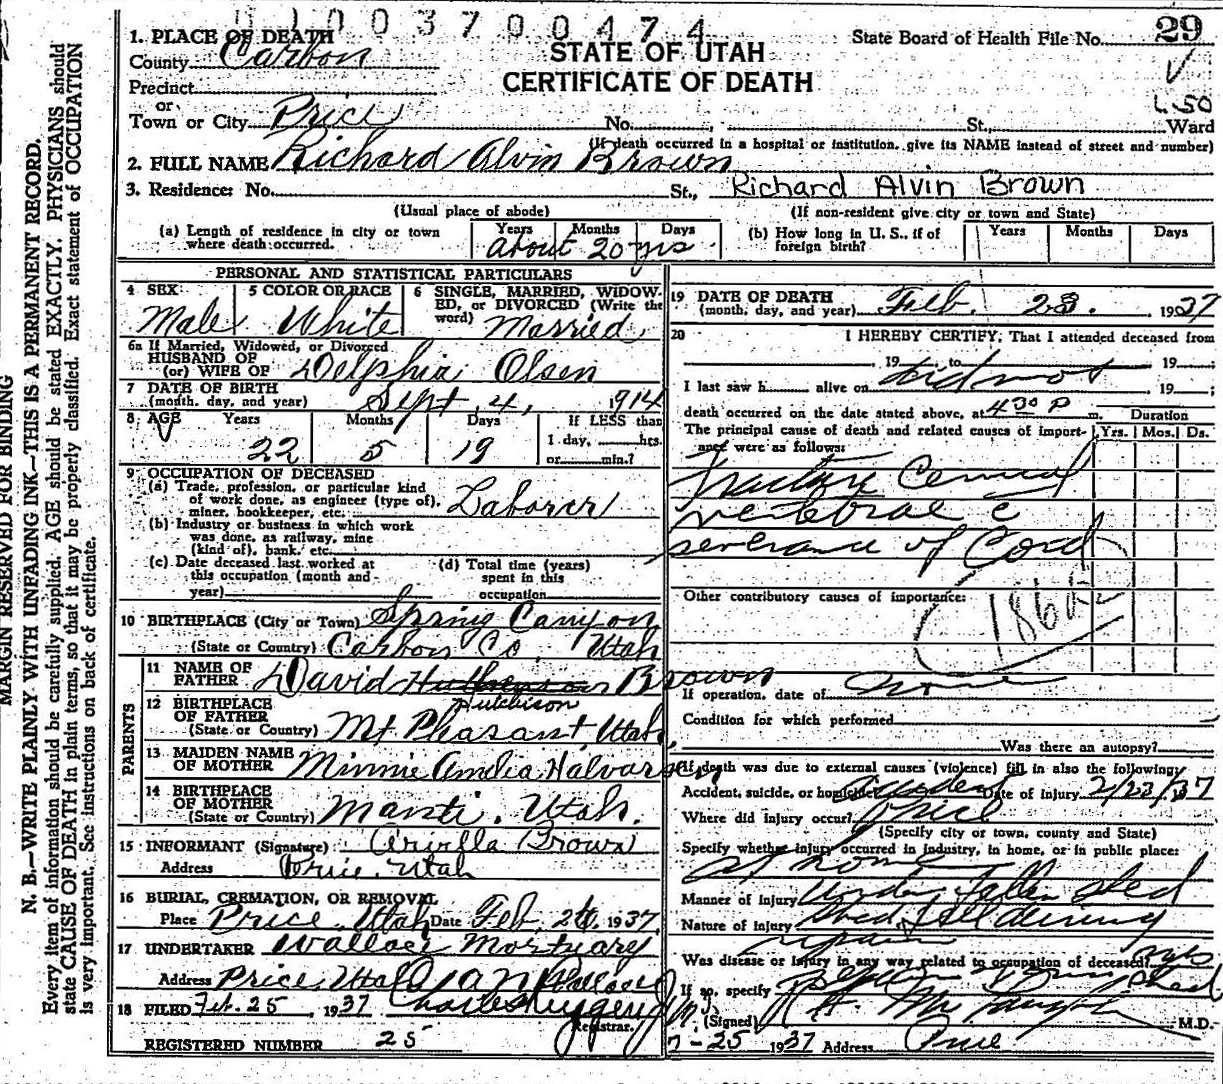 1003700474
1. PLACE OF DEATH
STATE OF UTAH
CERTIFICATE OF DEATH
State Board of Health File No. 29
County Carbon
Precinct
or
Town or City Price No. , St., Ward
L-50
(If death occurred in a hospital or institution, give its NAME instead of street and number)
2. FULL NAME Richard Alvin Brown
3. Residence: No. St., Richard Alvin Brown
(Usual place of abode) (If non-resident give city or town and State)
(a) Length of residence in city or town where death occurred. Years Months Days
about 20 yrs
(b) How long in U. S., if of foreign birth? Years Months Days
PERSONAL AND STATISTICAL PARTICULARS
4 SEX Male
5 COLOR OR RACE White
6 SINGLE, MARRIED, WIDOWED, or DIVORCED (Write the word) Married
6a If Married, Widowed, or Divorced
HUSBAND OF
(or) WIFE OF Delphia Olsen
7 DATE OF BIRTH
(month, day, and year) Sept 4, 1914
8 AGE Years Months Days If LESS than
22 5 19 1 day, hrs.
or min.?
9 OCCUPATION OF DECEASED
(a) Trade, profession, or particular kind
of work done, as engineer (type of),
miner, bookkeeper, etc. Laborer
(b) Industry or business in which work
was done, as railway, mine
(kind of), bank, etc.
(c) Date deceased last worked at
this occupation (month and
year)
(d) Total time (years)
spent in this
occupation
10 BIRTHPLACE (City or Town) Spring Canyon
(State or Country) Carbon Co. Utah
PARENTS
11 NAME OF
FATHER David Hutchenson Brown
Hutchison
12 BIRTHPLACE
OF FATHER
(State or Country) Mt Pleasant, Utah
13 MAIDEN NAME
OF MOTHER Minnie Amelia Halvarsen
14 BIRTHPLACE
OF MOTHER
(State or Country) Manti, Utah.
15 INFORMANT (Signature) Brown
Address Price, Utah
16 BURIAL, CREMATION, OR REMOVAL
Place Price, Utah Date Feb. 26, 1937
17 UNDERTAKER Wallace Mortuary
Address Price, Utah Wallace
18 FILED Feb. 25, 1937
Registrar.
REGISTERED NUMBER 25
19 DATE OF DEATH
(month, day, and year) Feb. 23. 1937
20 I HEREBY CERTIFY, That I attended deceased from
, 19 , to , 19 ;
I last saw h alive on did not , 19 ;
death occurred on the date stated above, at 4 30 P m. Duration
The principal cause of death and related causes of importance were as follows: Yrs. Mos. Ds.
Fracture Cervical
vertebrae c
severance of Cord
Other contributory causes of importance:
186
If operation, date of none
Condition for which performed
Was there an autopsy?
If death was due to external causes (violence) fill in also the following:
Accident, suicide, or homicide Accident Date of injury 2/23/37
Where did injury occur? Price
(Specify city or town, county and State)
Specify whether injury occurred in industry, in home, or in public place:
at home
Manner of Injury Under fallen shed
Nature of Injury Shed fell during
repair
Was disease or injury in any way related to occupation of deceased?
If so, specify shed
(Signed) M.D.
2-25 1937 Address Price
MARGIN RESERVED FOR BINDING
N. B.—WRITE PLAINLY WITH UNFADING INK—THIS IS A PERMANENT RECORD.
Every item of information should be carefully supplied. AGE should be stated EXACTLY. PHYSICIANS should
state CAUSE OF DEATH in plain terms, so that it may be properly classified. Exact statement of OCCUPATION
is very important. See instructions on back of certificate.